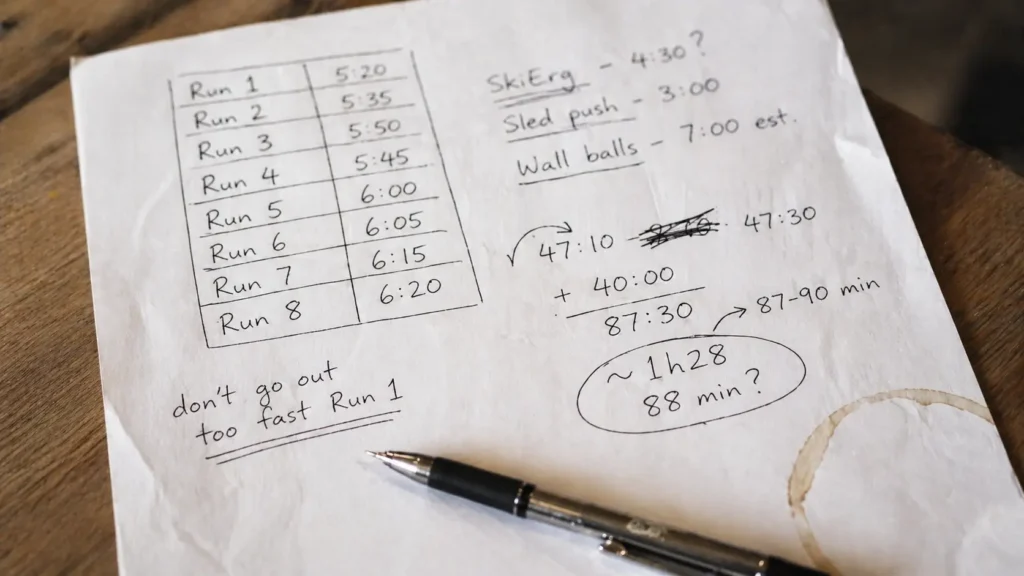 Run 1 5:20
Run 2 5:35
Run 3 5:50
Run 4 5:45
Run 5 6:00
Run 6 6:05
Run 7 6:15
Run 8 6:20
don't go out
too fast Run 1
SkiErg - 4:30?
Sled push - 3:00
Wall balls - 7:00 est.
47:10 47:30
+ 40:00
87:30 → 87-90 min
~ 1h28
88 min?